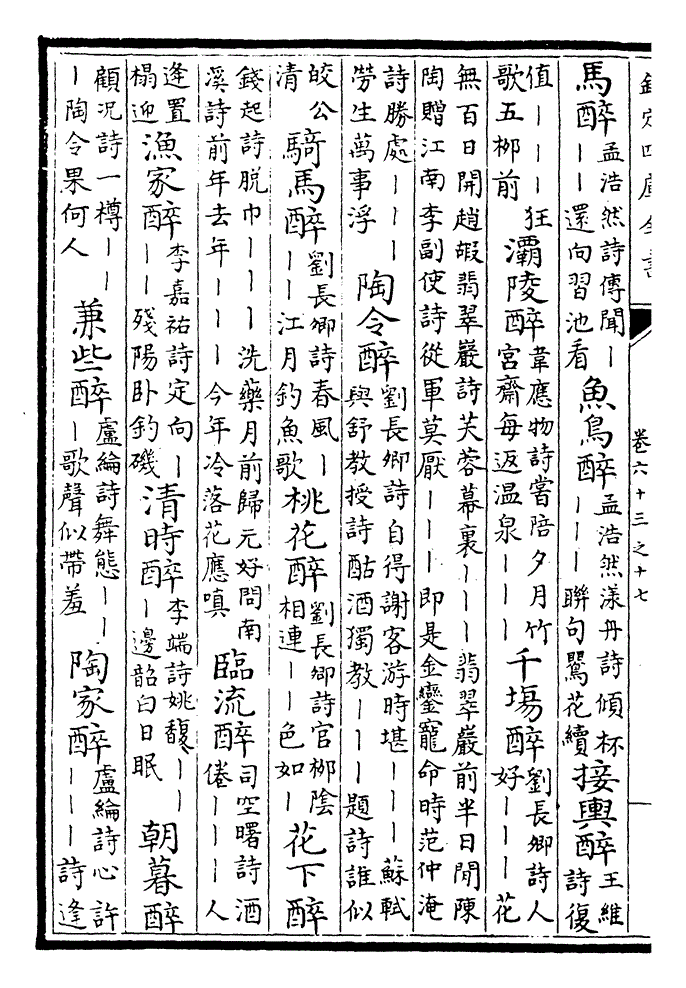 欽定四庫全書
卷六十三之十七
馬醉
孟浩然詩傳聞丨
丨丨還向習池看
魚鳥醉
孟浩然漾丹詩傾杯
丨丨丨聯句鶯花續
接輿醉
王維
詩復
值丨丨丨狂
歌五柳前
灞陵醉
韋應物詩嘗陪夕月竹
宮齋每返温泉丨丨丨
千塲醉
劉長卿詩人
好丨丨丨花
無百日開趙嘏翡翠巖詩芙蓉幕裏丨丨丨翡翠巖前半日閒陳
陶贈江南李副使詩從軍莫厭丨丨丨即是金鑾寵命時范仲淹
詩勝處丨丨丨
勞生萬事浮
陶令醉
劉長卿詩自得謝客游時堪丨丨丨蘇軾
與舒教授詩酤酒獨教丨丨丨題詩誰似
皎公
清
騎馬醉
劉長卿詩春風丨
丨丨江月釣魚歌
桃花醉
劉長卿詩官柳陰
相連丨丨色如丨
花下醉
錢起詩脱巾丨丨丨洗藥月前歸元好問南
溪詩前年去年丨丨丨今年冷落花應嗔
臨流醉
司空曙詩酒
倦丨丨丨人
逢置
榻迎
漁家醉
李嘉祐詩定向丨
丨丨殘陽卧釣磯
清時醉
李端詩姚馥丨丨
丨邊韶白日眠
朝暮醉
顧况詩一樽丨丨
丨陶令果何人
兼些醉
盧綸詩舞態丨丨
丨歌聲似帶羞
陶家醉
盧綸詩心許
丨丨丨詩逢